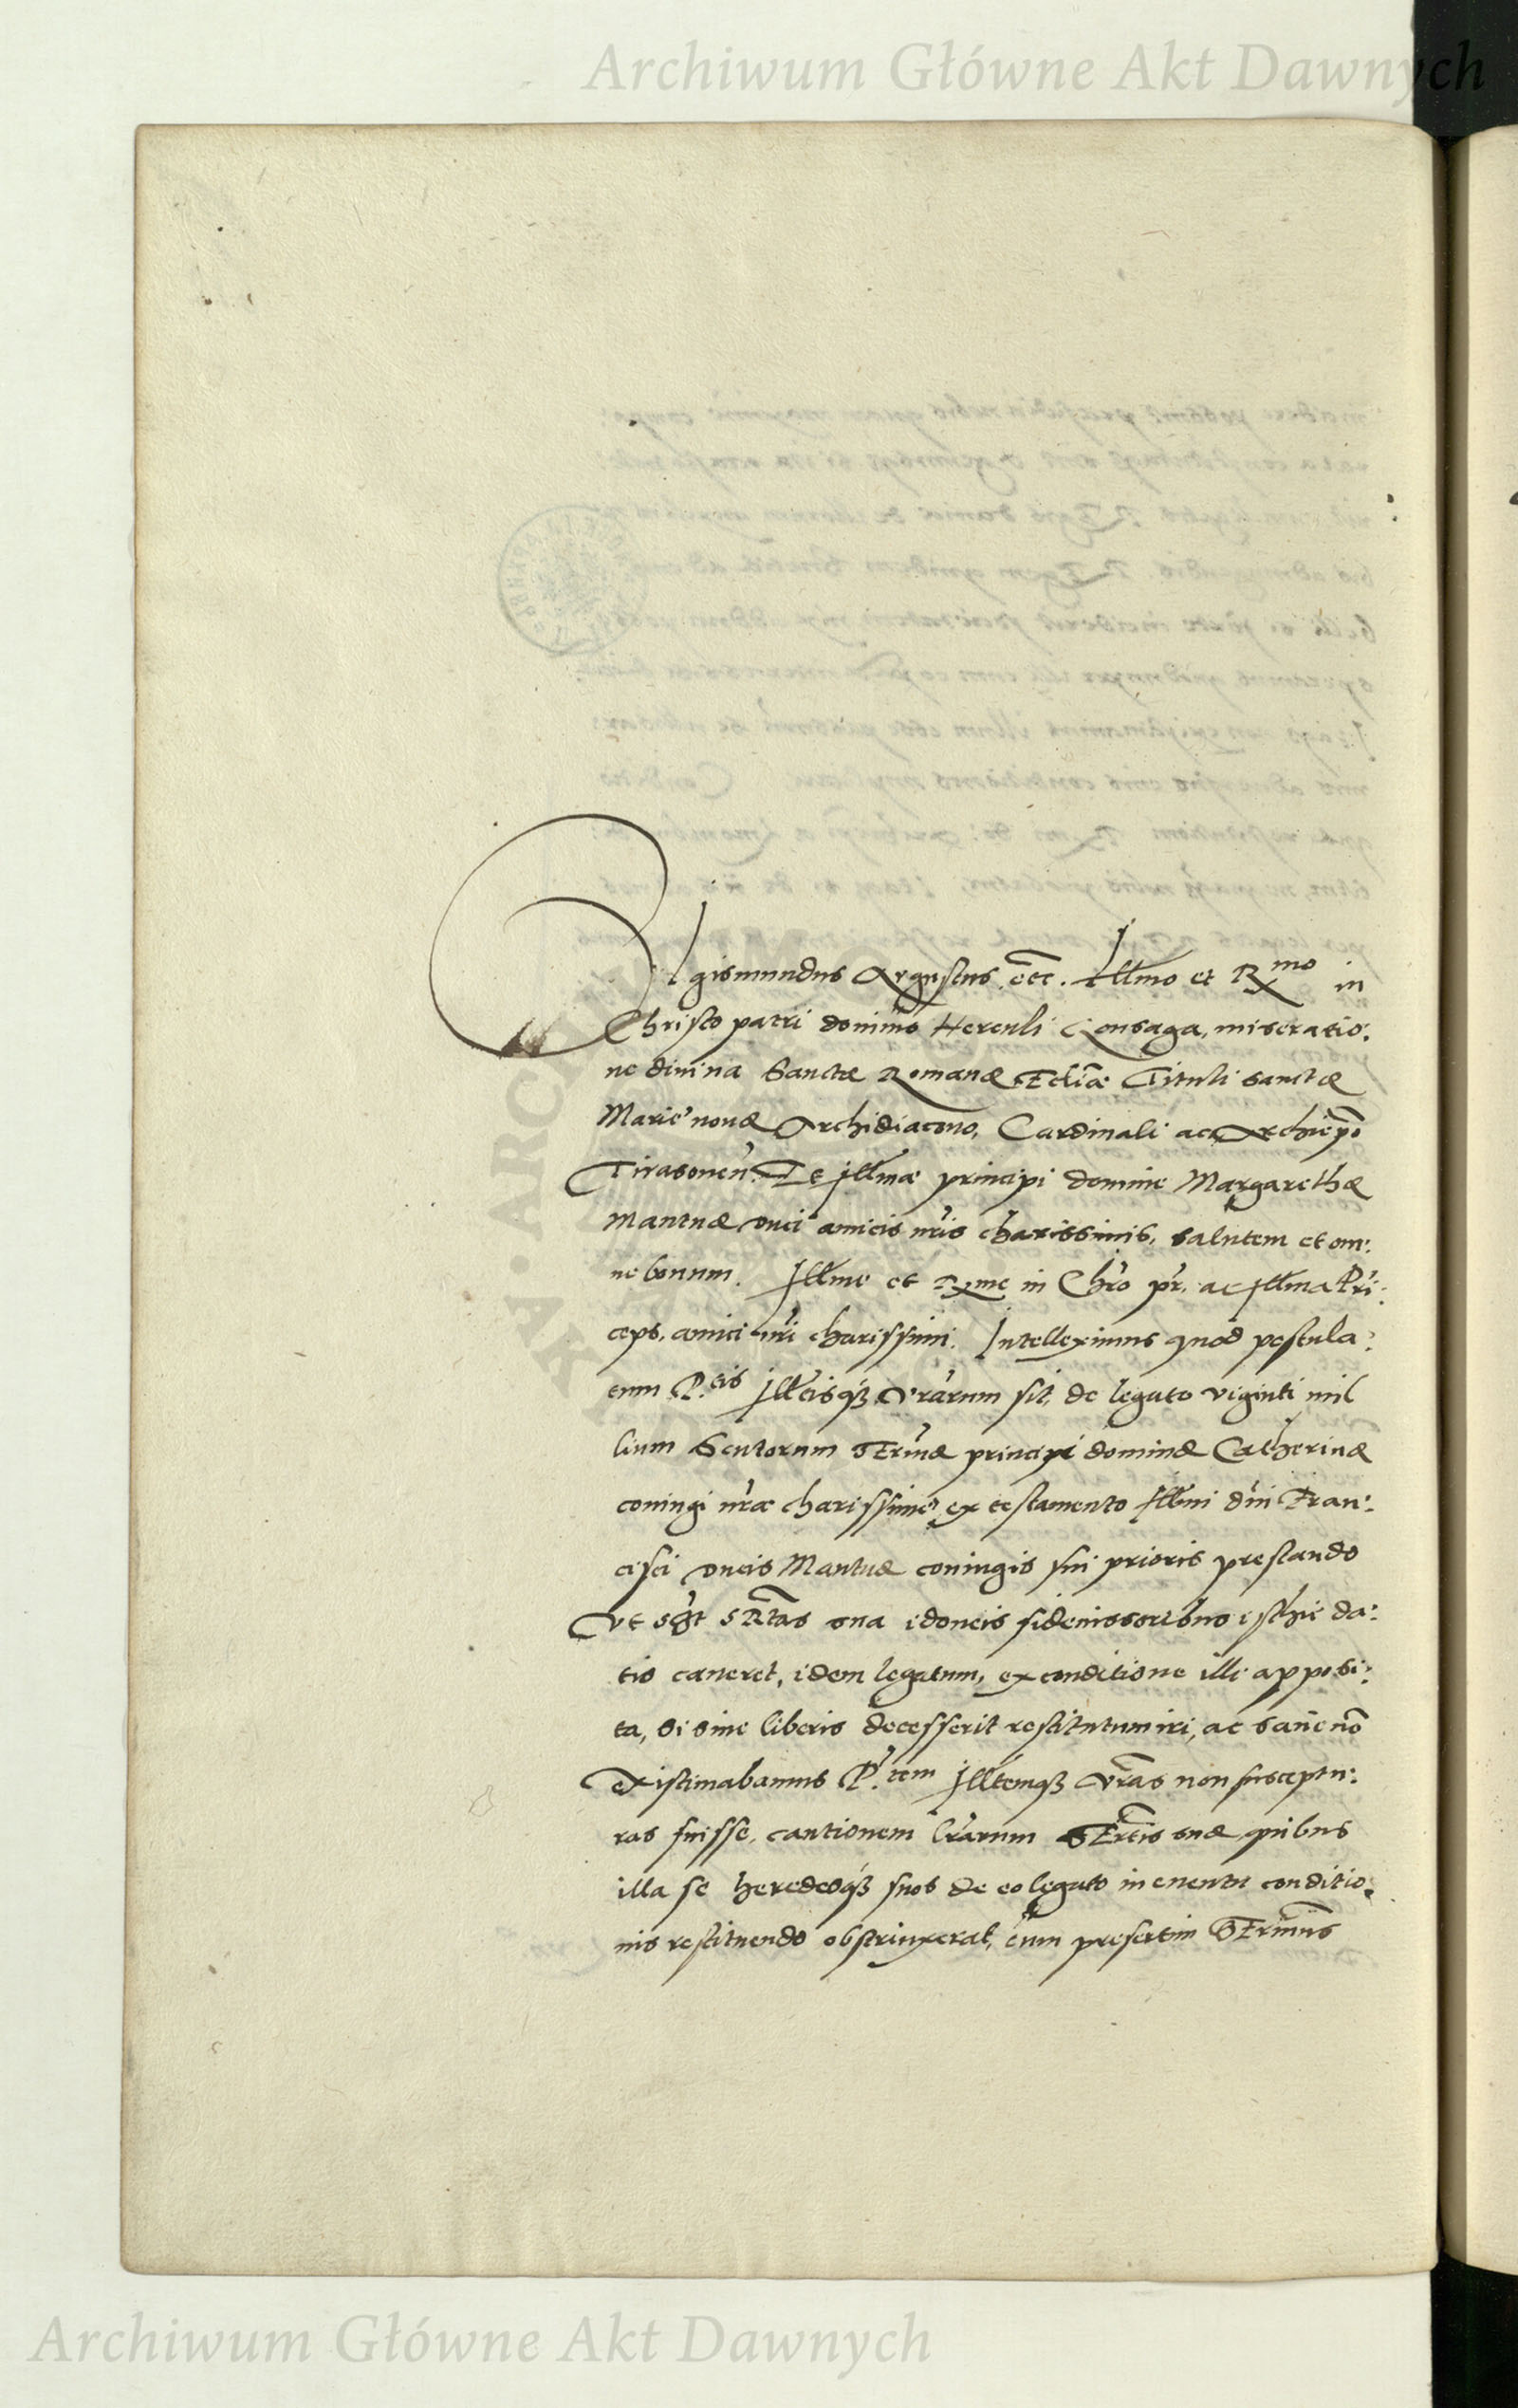 Archiwum Główne Akt Dawnych
Sigismundus Augustus etc. Illmo et Rmo in
Christo patri domino Herculi Gonsaga, miseratio:
ne divina Sanctæ Romanæ Ecliæ Tituli sanctæ
Marie novæ Archidiacono, Cardinali ac Archiepo
Tirasonen. Et Illmæ principi domine Margarethæ
Mantuæ duci amicis nris charissimis, salutem et om:
ne bonum. Illme et Rxme in Chro pr. ac Illma Pri:
ceps, amici nri charissimi. Intelleximus quod postula:
tum P.tis Illtisq3 vrarum sit, de legato viginti mil
lium Scutorum SErmæ principi dominæ Catherinæ
coniugi nræ charissime, ex testamento Illmi dni Fran:
cisci ducis Mantuæ coniugis sui prioris prestando
Ut SRtas sua idoneis fideiussoribus isthic da:
tis caveret, idem legatum, ex conditione illi apposi:
ta, si sine liberis decesserit restitutum iri, ac sane no
existimabamus P.tem Illtemq3 vras non susceptu:
ras fuisse, cautionem lrarum SErtis suæ quibus
illa se heredesq3 suos de eo legato in eventu conditio:
nis restituendo obstrinxerat, cum presertim SErmus
Archiwum Główne Akt Dawnych